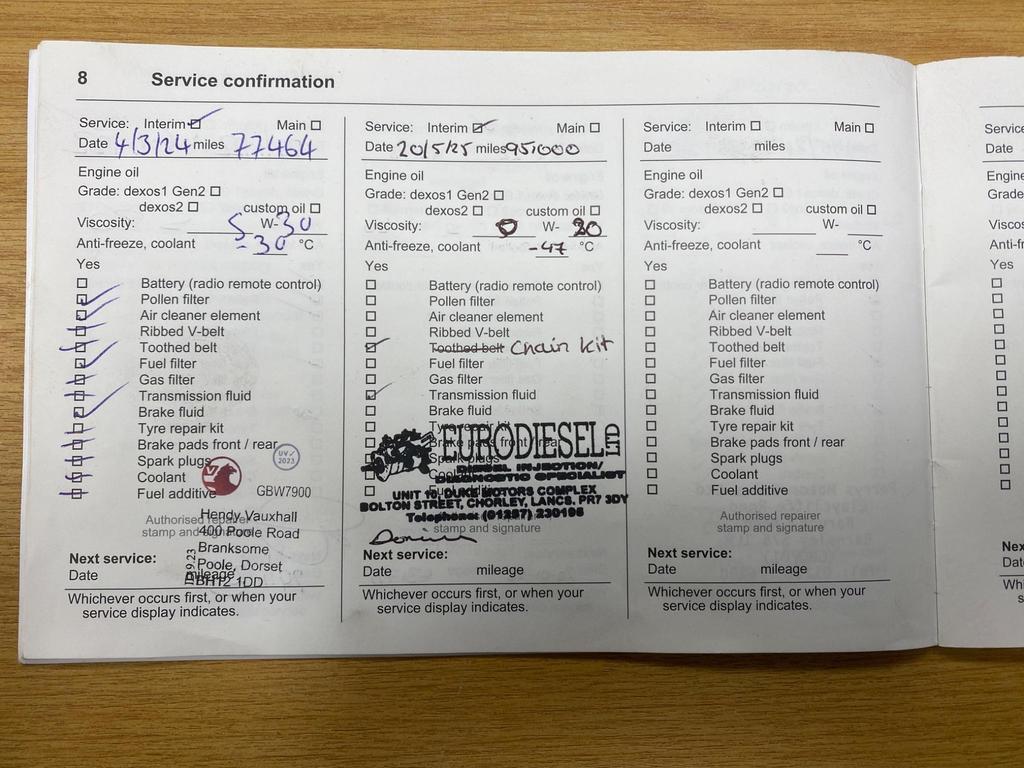 8 Service confirmation
Service: Interim Main
Date 4/3/24 miles 77464
Engine oil
Grade: dexos1 Gen2
dexos2 custom oil
Viscosity: 5 W-30
Anti-freeze, coolant -30 °C
Yes
Battery (radio remote control)
Pollen filter
Air cleaner element
Ribbed V-belt
Toothed belt
Fuel filter
Gas filter
Transmission fluid
Brake fluid
Tyre repair kit
Brake pads front / rear
Spark plugs
Coolant
Fuel additive
UV✓
2023
GBW7900
Authorised repairer
stamp and signature
Hendy Vauxhall
400 Poole Road
Branksome
Poole, Dorset
BH12 1DD
Next service:
Date mileage
Whichever occurs first, or when your
service display indicates.
Service: Interim Main
Date 20/5/25 miles 95,000
Engine oil
Grade: dexos1 Gen2
dexos2 custom oil
Viscosity: 0 W- 20
Anti-freeze, coolant -47 °C
Yes
Battery (radio remote control)
Pollen filter
Air cleaner element
Ribbed V-belt
Toothed belt Chain Kit
Fuel filter
Gas filter
Transmission fluid
Brake fluid
Tyre repair kit
Brake pads front / rear
Spark plugs
EURODIESEL LTD
DIESEL INJECTION/
DIAGNOSTIC SPECIALIST
UNIT 10, DUKE MOTORS COMPLEX
BOLTON STREET, CHORLEY, LANCS, PR7 3DY
Telephone: (01257) 230195
stamp and signature
Next service:
Date mileage
Whichever occurs first, or when your
service display indicates.
Service: Interim Main
Date miles
Engine oil
Grade: dexos1 Gen2
dexos2 custom oil
Viscosity: W-
Anti-freeze, coolant °C
Yes
Battery (radio remote control)
Pollen filter
Air cleaner element
Ribbed V-belt
Toothed belt
Fuel filter
Gas filter
Transmission fluid
Brake fluid
Tyre repair kit
Brake pads front / rear
Spark plugs
Coolant
Fuel additive
Authorised repairer
stamp and signature
Next service:
Date mileage
Whichever occurs first, or when your
service display indicates.
Date
Yes